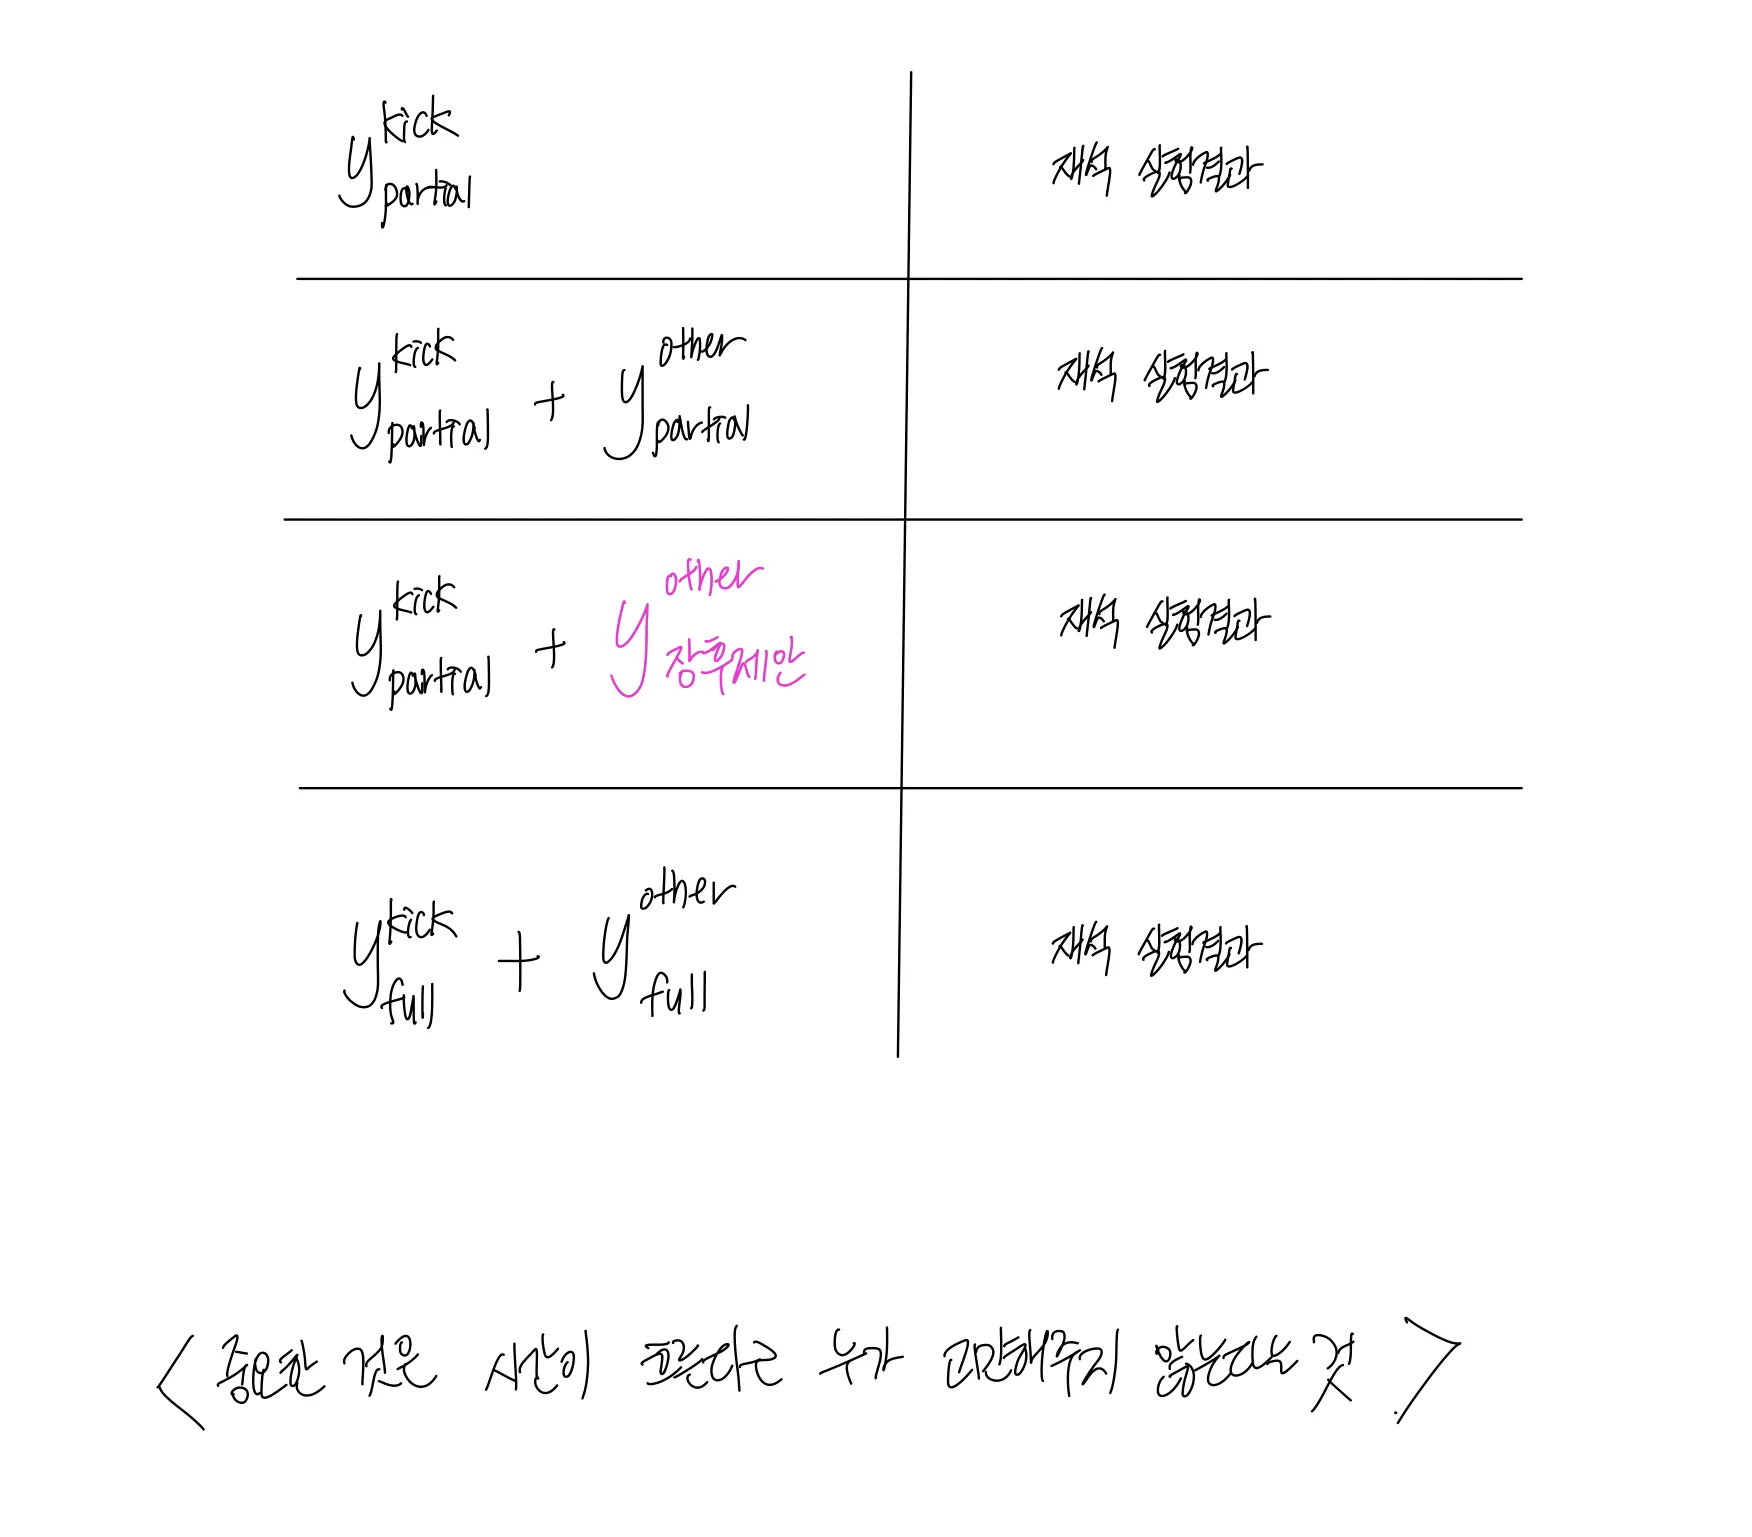 y^kick_partial 재석 실험결과
y^kick_partial + y^other_partial 재석 실험결과
y^kick_partial + y^other_장후제안 재석 실험결과
y^kick_full + y^other_full 재석 실험결과
< 중요한 것은 시간이 흐른다고 누가 고민해주지 않는다는 것 >